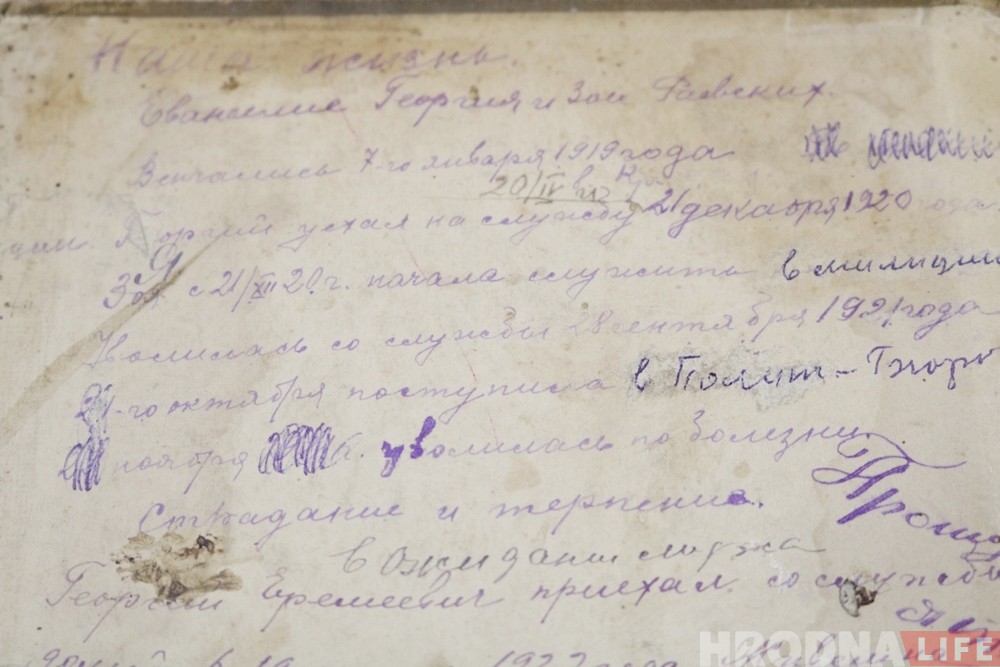 Наша жизнь.
Евангелие Георгия и Зои Раевских.
Венчались 7-го января 1919 года
20/IV в
Георгий уехал на службу 21 декабря 1920 года
Зоя с 21/XII 20 г. начала служить в милиции
Уволилась со службы 28 сентября 1921 года
21-го октября поступила в Полит-
ноября уволилась по болезни
Страдание и терпение.
в ожидании мужа
Георгий Еремеевич приехал со службы
1922 года
HRODNA LIFE